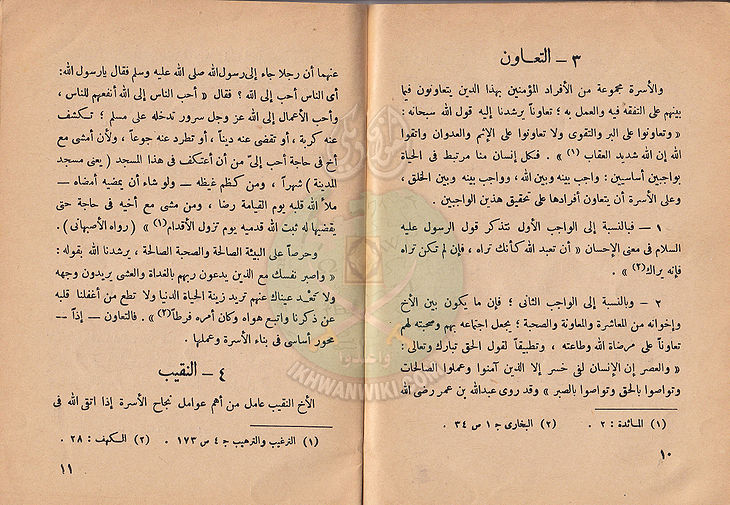 ٣ — التعـاون
والأسرة مجموعة من الأفراد المؤمنين بهذا الدين يتعاونون فيما
بينهم على التفقه فيه والعمل به ؛ تعاوناً يرشدنا إليه قول الله سبحانه :
« وتعاونوا على البر والتقوى ولا تعاونوا على الإثم والعدوان واتقوا
الله إن الله شديد العقاب (١) » . فكل إنسان منا مرتبط فى الحياة
بواجبين أساسيين : واجب بينه وبين الله ، وواجب بينه وبين الخلق ،
وعلى الأسرة أن يتعاون أفرادها على تحقيق هذين الواجبين .
١ — فبالنسبة إلى الواجب الأول نتذكر قول الرسول عليه
السلام فى معنى الإحسان « أن تعبد الله كأنك تراه ، فإن لم تكن تراه
فإنه يراك(٢) » .
٢ — وبالنسبة إلى الواجب الثانى ؛ فإن ما يكون بين الأخ
وإخوانه من المعاشرة والمعاونة والصحبة ؛ يجعل اجتماعه بهم وصحبته لهم
تعاوناً على مرضاة الله وطاعته ، وتطبيقاً لقول الحق تبارك وتعالى :
« والعصر إن الإنسان لفى خسر إلا الذين آمنوا وعملوا الصالحات
وتواصوا بالحق وتواصوا بالصبر » وقد روى عبدالله بن عمر رضى الله
(١) المـائدة : ٢ . (٢) البخارى ج ١ ص ٣٤ .
١٠
عنهما أن رجلا جاء إلى رسول الله صلى الله عليه وسلم فقال يارسول الله:
أى الناس أحب إلى الله ؟ فقال « أحب الناس إلى الله أنفعهم للناس ،
وأحب الأعمال إلى الله عز وجل سرور تدخله على مسلم ؛ تكشف
عنه كربة ، أو تقضى عنه ديناً ، أو تطرد عنه جوعاً ، ولأن أمشى مع
أخ فى حاجة أحب إلىّ من أن أعتكف فى هذا المسجد ( يعنى مسجد
المدينة ) شهراً ، ومن كظم غيظه — ولو شاء أن يمضيه أمضاه —
ملأ الله قلبه يوم القيامة رضا ، ومن مشى مع أخيه فى حاجة حتى
يقضيها له ثبت الله قدميه يوم تزول الأقدام(١) » ( رواه الأصبهانى ) .
وحرصاً على البيئة الصالحة والصحبة الصالحة ، يرشدنا الله بقوله :
« واصبر نفسك مع الذين يدعون ربهم بالغداة والعشى يريدون وجهه
ولا تعْـد عيناك عنهم تريد زينة الحياة الدنيا ولا تطع من أغفلنا قلبه
عن ذكرنا واتبع هواه وكان أمره فرطاً(٢) » . فالتعاون — إذاً —
محور أساسى فى بناء الأسرة وعملها .
٤ — النقيب
الأخ النقيب عامل من أهم عوامل نجاح الأسرة إذا اتقى الله فى
(١) الترغيب والترهيب ج ٤ ص ١٧٣ . (٢) الكهف : ٢٨ .
١١
وأعدوا
IKHWANWIKI.COM